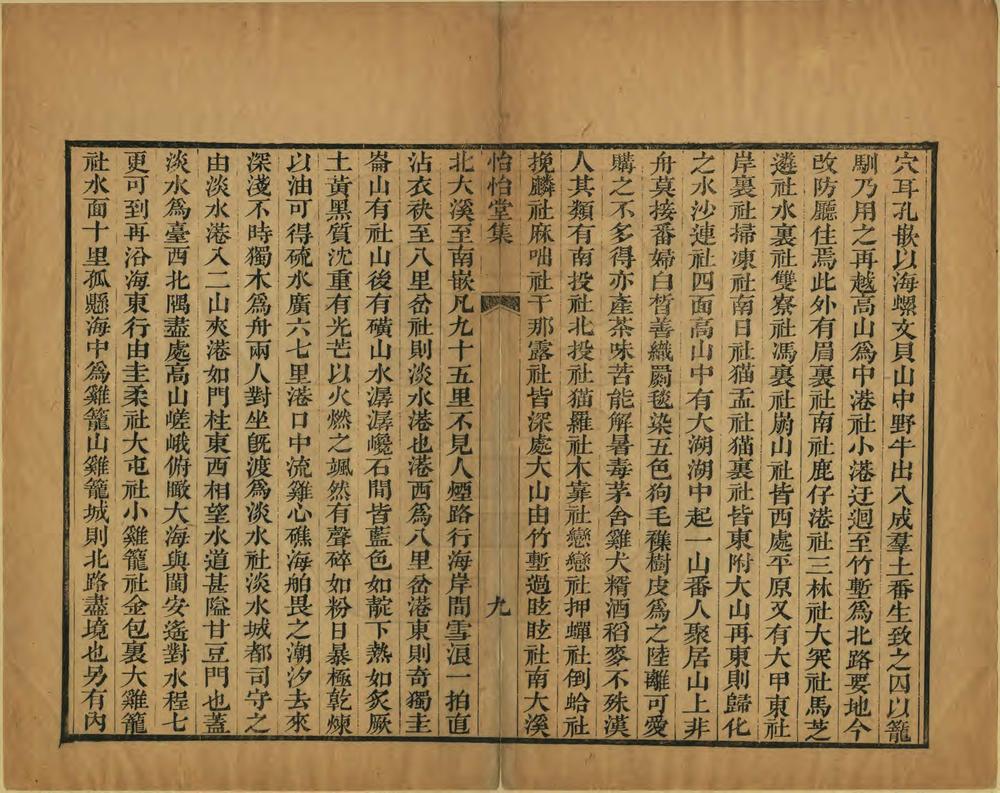 穴耳孔嵌以海螺文貝山中野牛出入成羣土番生致之囚以籠
馴乃用之再越高山爲中港社小港迂迴至竹塹爲北路要地今
改防廳住焉此外有眉裏社南社鹿仔港社三林社大突社馬芝
遴社水裏社雙寮社馮裏社崩山社皆西處平原又有大甲東社
岸裏社掃凍社南日社猫盂社猫裏社皆東附大山再東則歸化
之水沙連社四面高山中有大湖湖中起一山番人聚居山上非
舟莫接番婦白皙善織罽毯染五色狗毛襍樹皮爲之陸離可愛
購之不多得亦產茶味苦能解暑毒茅舍雞犬糈酒稻麥不殊漢
人其類有南投社北投社猫羅社木靠社戀戀社押蟬社倒蛤社
挽麟社麻咄社干那露社皆深處大山由竹塹過眩眩社南大溪
怡怡堂集 九
北大溪至南嵌凡九十五里不見人煙路行海岸間雪浪一拍直
沾衣袂至八里岔社則淡水港也港西爲八里岔港東則奇獨圭
崙山有社山後有磺山水潺潺巉石間皆藍色如靛下熱如炙厥
土黃黑質沈重有光芒以火燃之颯然有聲碎如粉日暴極乾煉
以油可得硫水廣六七里港口中流雞心礁海舶畏之潮汐去來
深淺不時獨木爲舟兩人對坐旣渡爲淡水社淡水城都司守之
由淡水港入二山夾港如門柱東西相望水道甚隘甘豆門也蓋
淡水爲臺西北隅盡處高山嵯峨俯瞰大海與閩安遙對水程七
更可到再沿海東行由圭柔社大屯社小雞籠社金包裏大雞籠
社水面十里孤懸海中爲雞籠山雞籠城則北路盡境也另有內